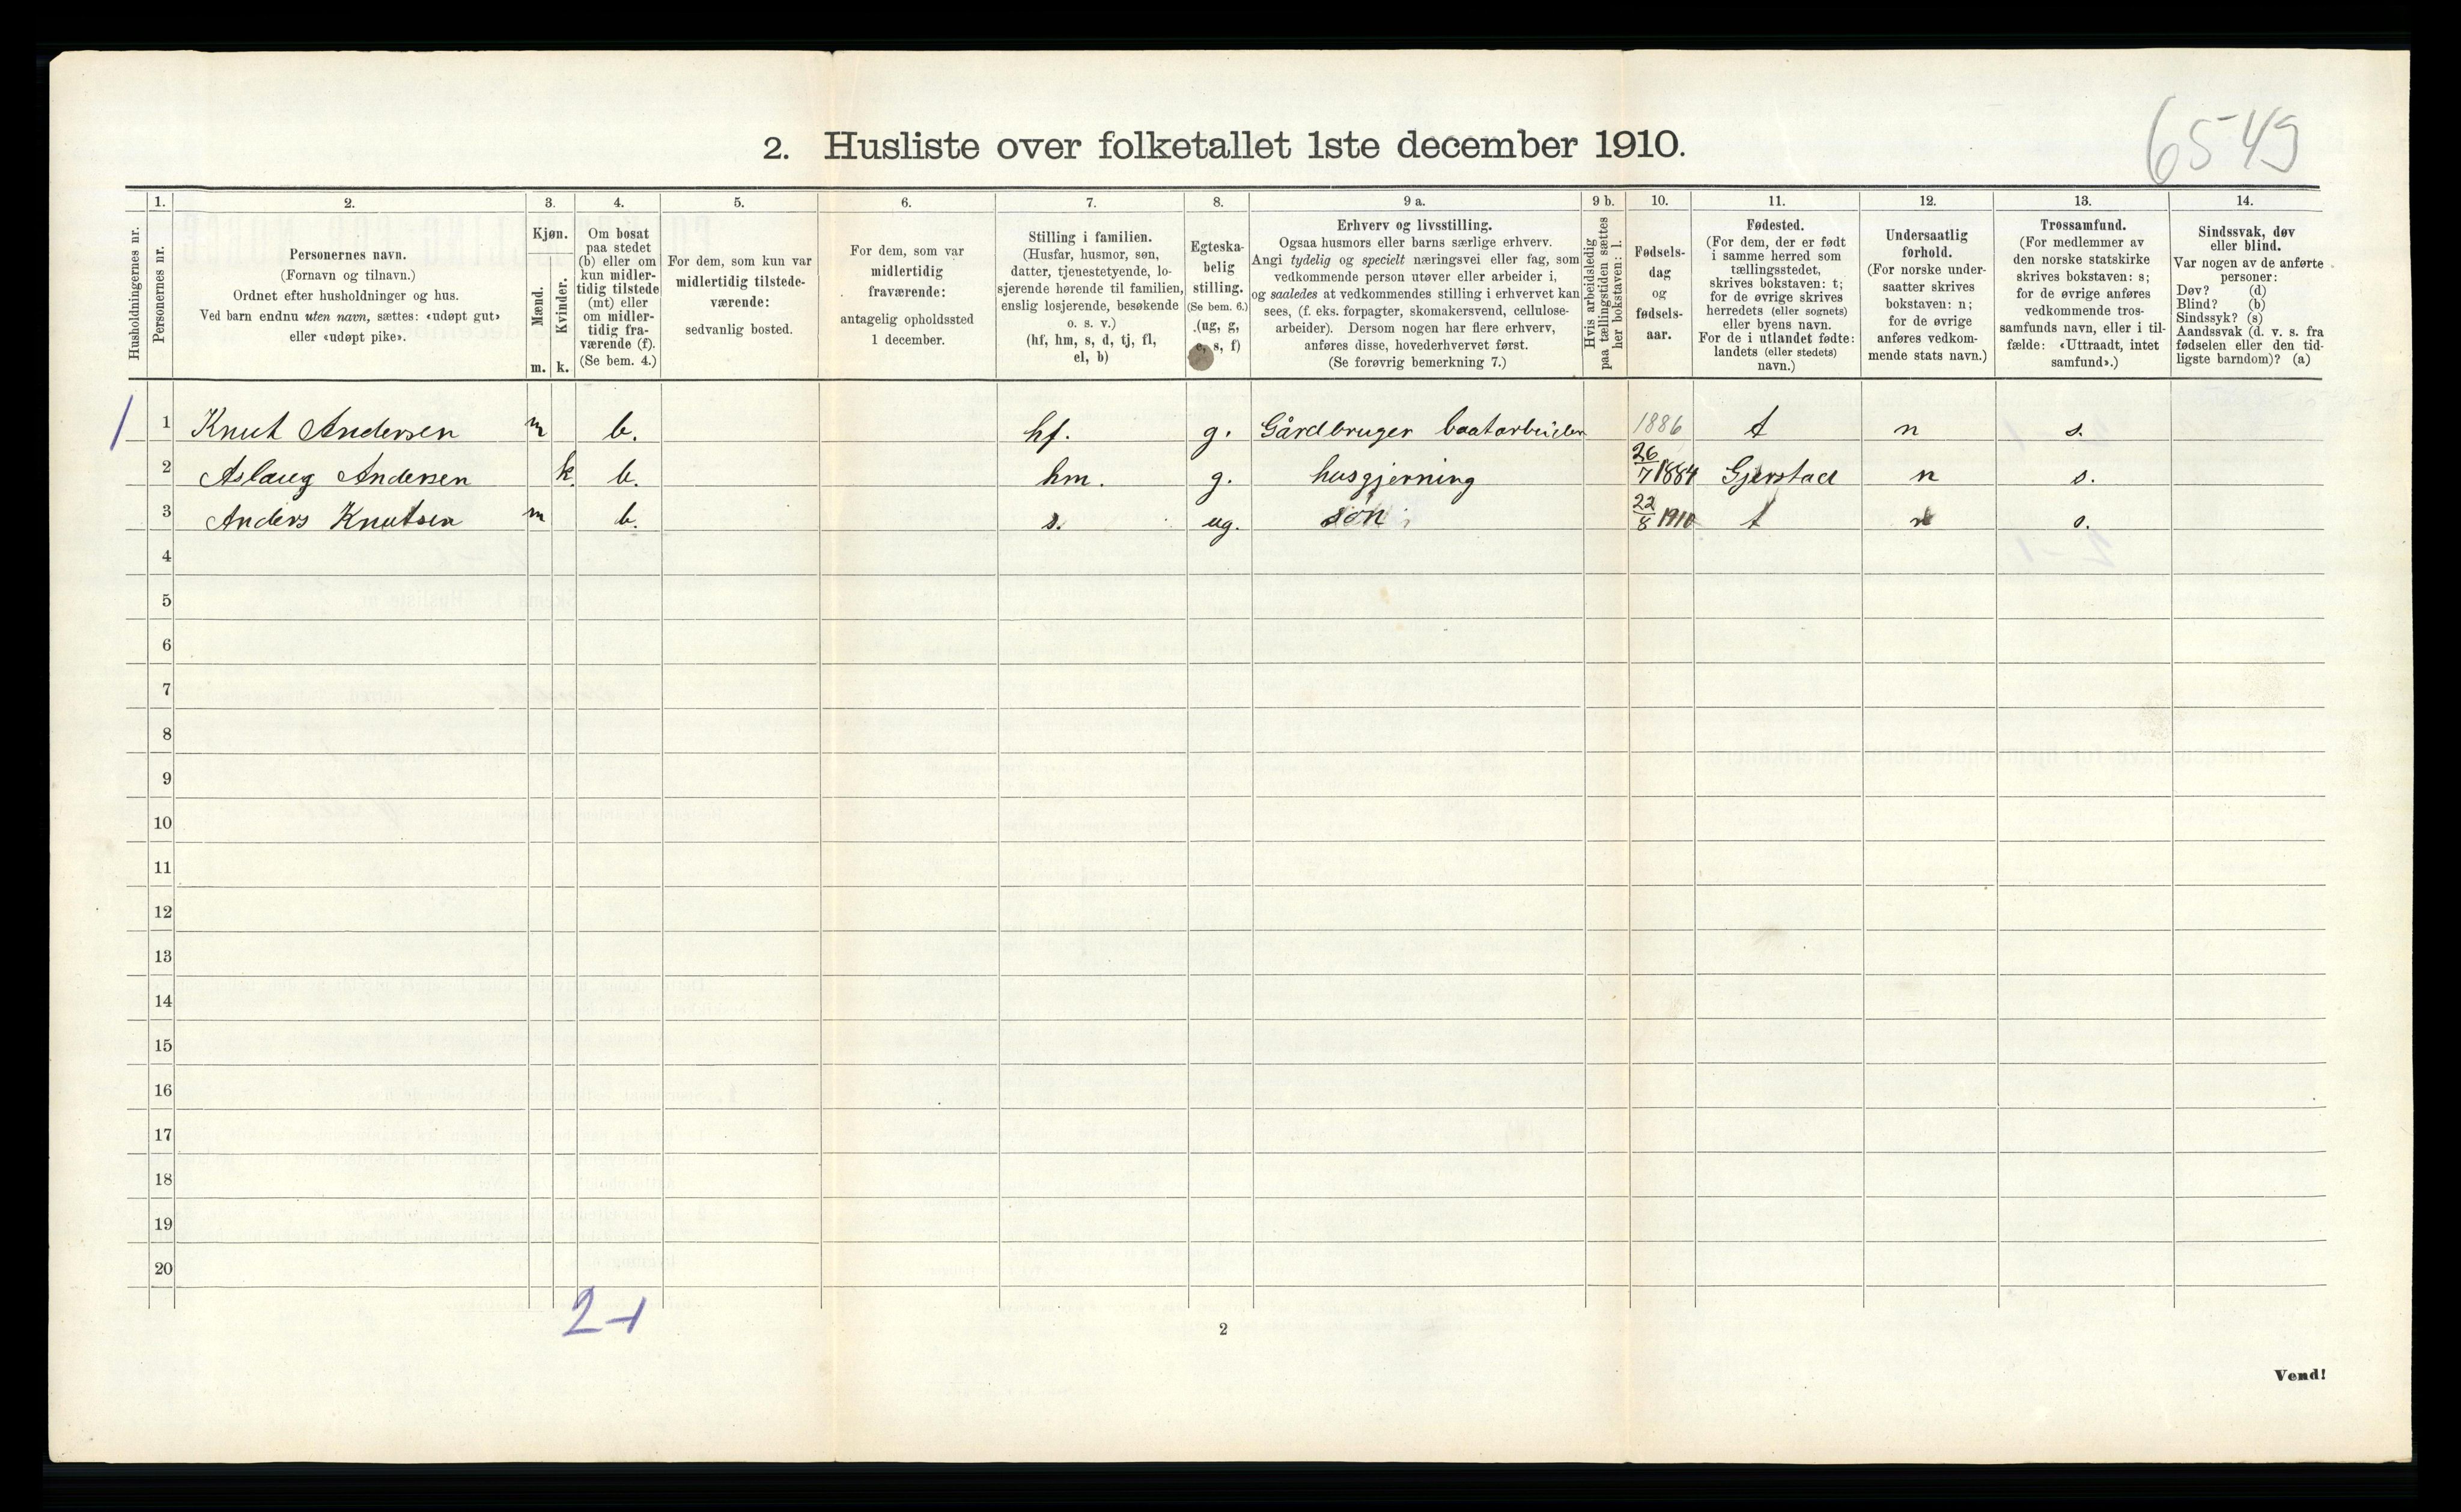 6549
2. Husliste over folketallet 1ste december 1910.
Husholdningernes nr.
1.
Personernes nr.
2.
Personernes navn.
(Fornavn og tilnavn.)
Ordnet efter husholdninger og hus.
Ved barn endnu uten navn, sættes: «udøpt gut»
eller «udøpt pike».
3.
Kjøn.
Mænd.
m.
Kvinder.
k.
4.
Om bosat
paa stedet
(b) eller om
kun midler-
tidig tilstede
(mt) eller
om midler-
tidig fra-
værende (f).
(Se bem. 4.)
5.
For dem, som kun var
midlertidig tilstede-
værende:
sedvanlig bosted.
6.
For dem, som var
midlertidig
fraværende:
antagelig opholdssted
1 december.
7.
Stilling i familien.
(Husfar, husmor, søn,
datter, tjenestetyende, lo-
sjerende hørende til familien,
enslig losjerende, besøkende
o. s. v.)
(hf, hm, s, d, tj, fl,
el, b)
8.
Egteska-
belig
stilling.
(Se bem. 6.)
(ug, g,
e, s, f)
9 a.
Erhverv og livsstilling.
Ogsaa husmors eller barns særlige erhverv.
Angi tydelig og specielt næringsvei eller fag, som
vedkommende person utøver eller arbeider i,
og saaledes at vedkommendes stilling i erhvervet kan
sees, (f. eks. forpagter, skomakersvend, cellulose-
arbeider). Dersom nogen har flere erhverv,
anføres disse, hovederhvervet først.
(Se forøvrig bemerkning 7.)
9 b.
Hvis arbeidsledig
paa tællingstiden sættes
her bokstaven: l.
10.
Fødsels-
dag
og
fødsels-
aar.
11.
Fødested.
(For dem, der er født
i samme herred som
tællingsstedet,
skrives bokstaven: t;
for de øvrige skrives
herredets (eller sognets)
eller byens navn.
For de i utlandet fødte:
landets (eller stedets)
navn.)
12.
Undersaatlig
forhold.
(For norske under-
saatter skrives
bokstaven: n;
for de øvrige
anføres vedkom-
mende stats navn.)
13.
Trossamfund.
(For medlemmer av
den norske statskirke
skrives bokstaven: s;
for de øvrige anføres
vedkommende tros-
samfunds navn, eller i til-
fælde: «Uttraadt, intet
samfund».)
14.
Sindssvak, døv
eller blind.
Var nogen av de anførte
personer:
Døv? (d)
Blind? (b)
Sindssyk? (s)
Aandssvak (d. v. s. fra
fødselen eller den tid-
ligste barndom)? (a)
1 1 Knut Andersen m b. hf. g. Gårdbruger baatarbeider 1886 t n s.
2 Aslaug Andersen k b. hm. g. husgjerning 26/7 1884 Gjerstad n s.
3 Anders Knutsen m b. s. ug. søn 22/8 1910 t n s.
4
5
6
7
8
9
10
11
12
13
14
15
16
17
18
19
20
2-1
2
Vend!